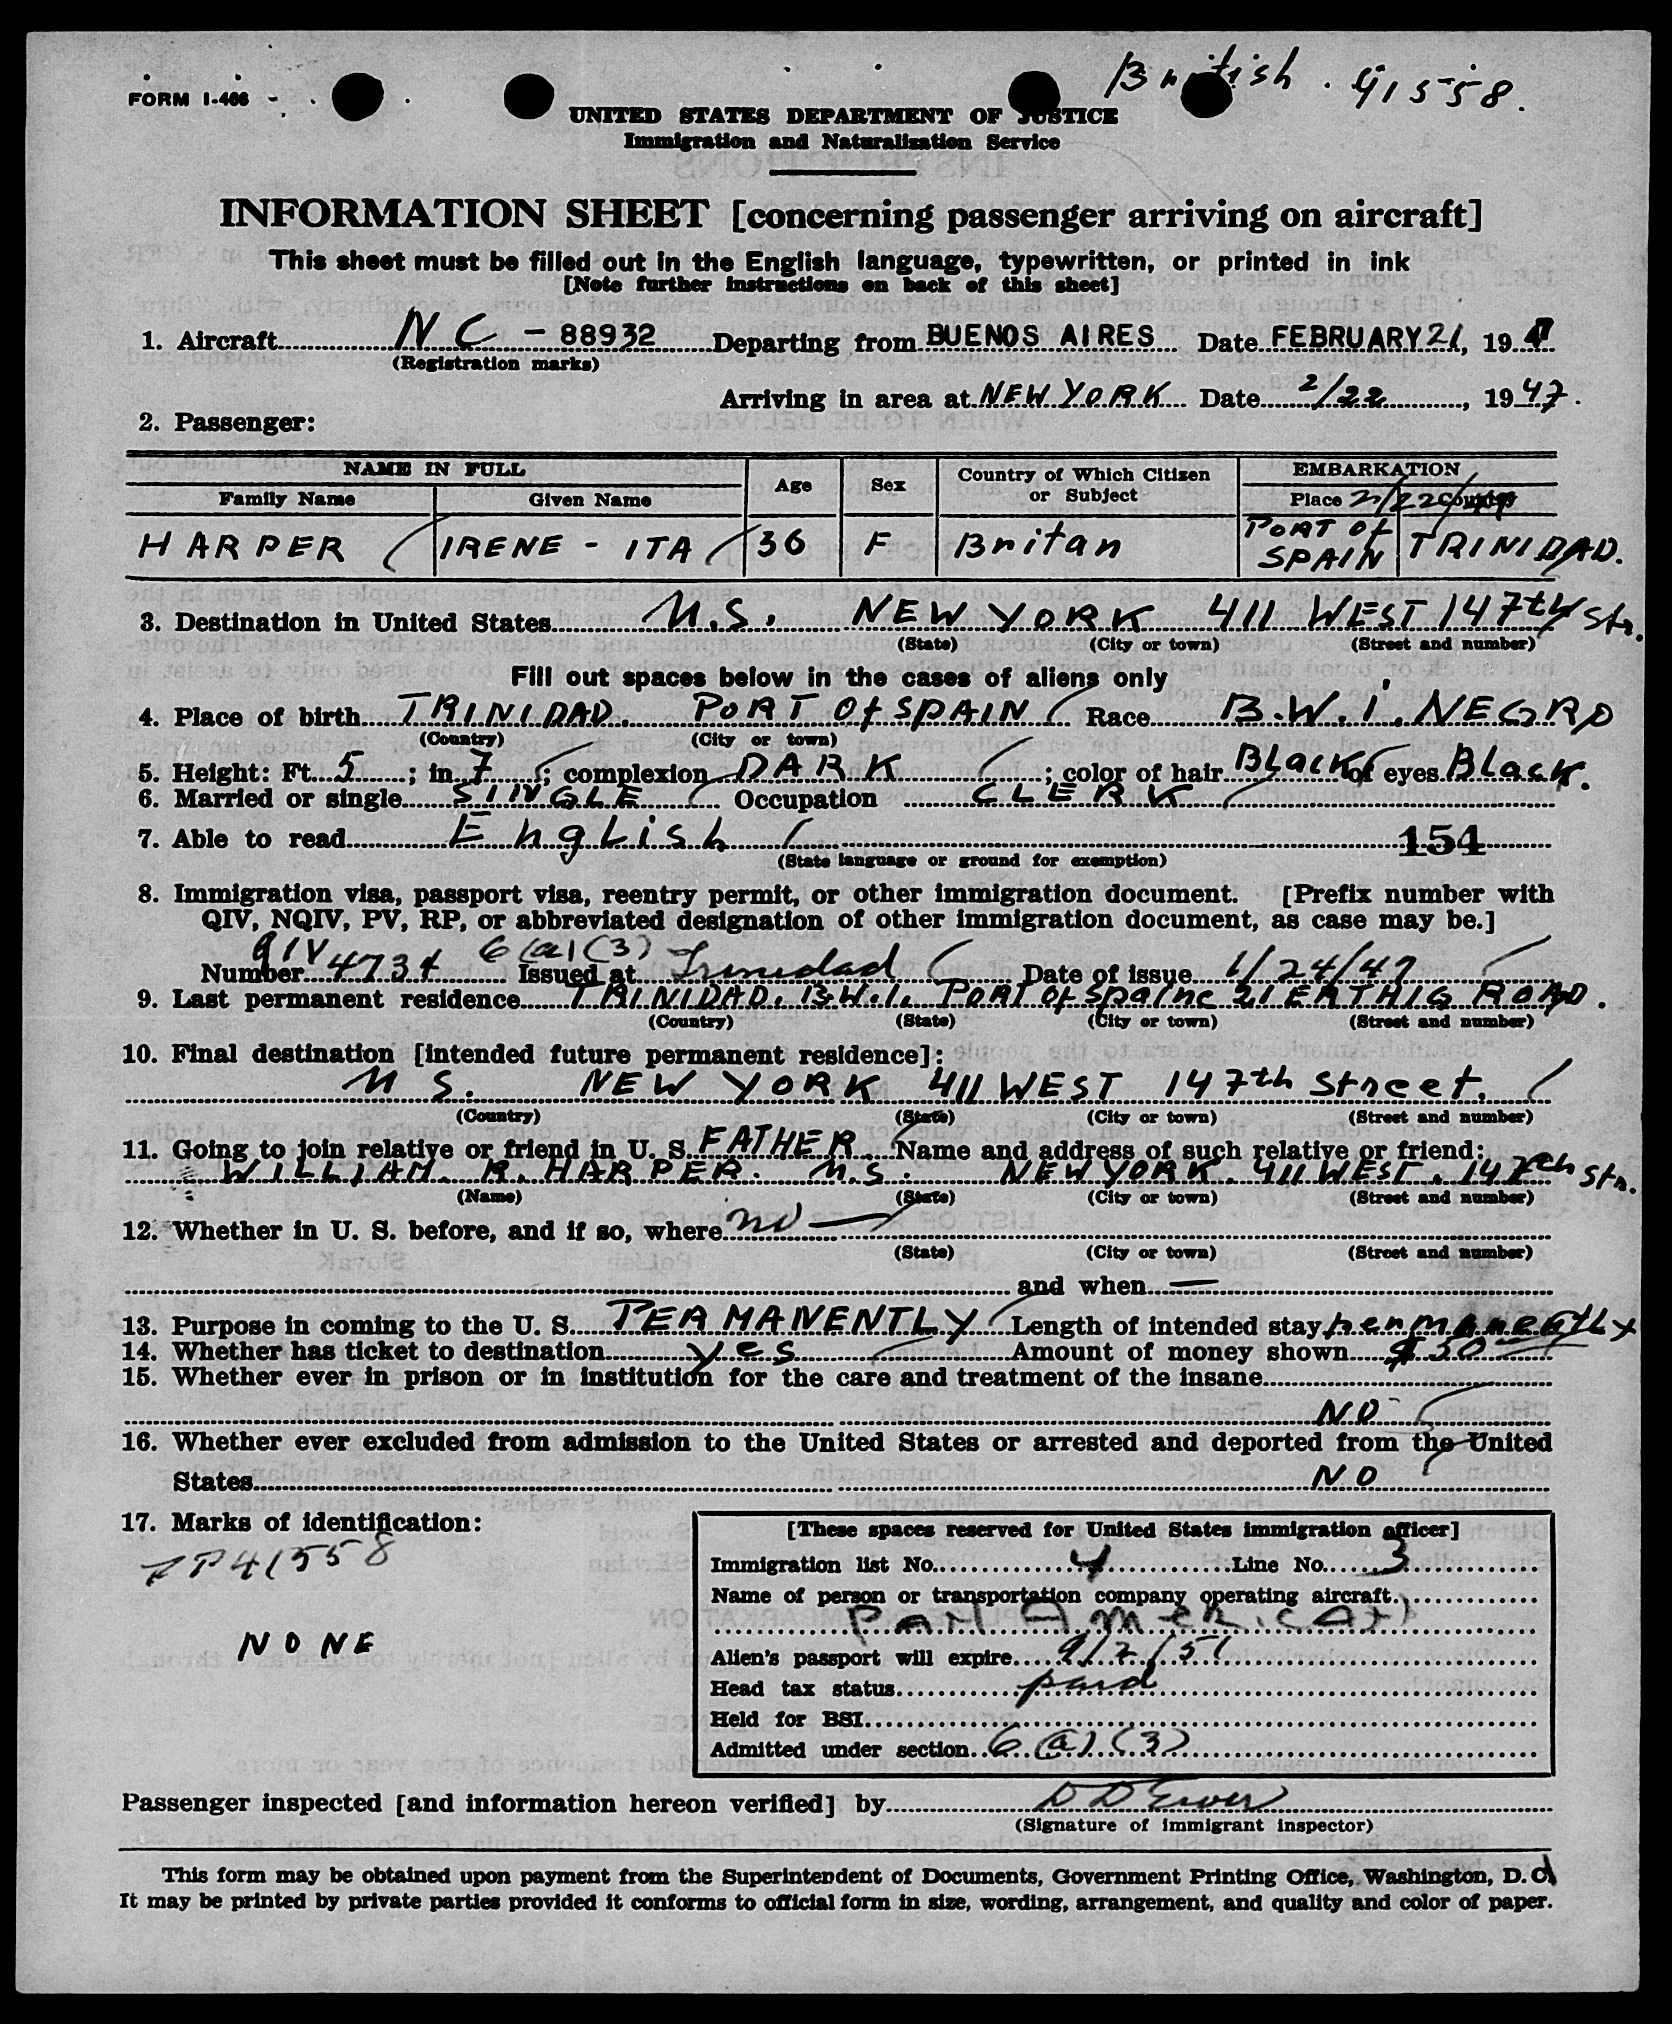 British. 41558.
FORM I-466
UNITED STATES DEPARTMENT OF JUSTICE
Immigration and Naturalization Service
INFORMATION SHEET [concerning passenger arriving on aircraft]
This sheet must be filled out in the English language, typewritten, or printed in ink
[Note further instructions on back of this sheet]
1. Aircraft NC - 88932 Departing from BUENOS AIRES Date FEBRUARY 21, 1947
(Registration marks)
Arriving in area at NEW YORK Date 2/22, 1947.
2. Passenger:
NAME IN FULL Age Sex Country of Which Citizen or Subject EMBARKATION
Family Name Given Name Place 2/22/47 Country
HARPER IRENE - ITA 36 F Britan PORT Of SPAIN TRINIDAD.
3. Destination in United States U.S. NEW YORK 411 WEST 147th Str.
(State) (City or town) (Street and number)
Fill out spaces below in the cases of aliens only
4. Place of birth TRINIDAD. PORT Of SPAIN Race B.W.I. NEGRO
(Country) (City or town)
5. Height: Ft. 5; in. 7; complexion DARK; color of hair BLack of eyes BLack.
6. Married or single SINGLE Occupation CLERK
7. Able to read English 154
(State language or ground for exemption)
8. Immigration visa, passport visa, reentry permit, or other immigration document. [Prefix number with
QIV, NQIV, PV, RP, or abbreviated designation of other immigration document, as case may be.]
Number QIV 4734 6(a)(3) Issued at Trinidad Date of issue 1/24/47
9. Last permanent residence TRINIDAD. B.W.I. PORT Of Spaine 21 ERTHIG ROAD.
(Country) (State) (City or town) (Street and number)
10. Final destination [intended future permanent residence]:
U S. NEW YORK 411 WEST 147th Street.
(Country) (State) (City or town) (Street and number)
11. Going to join relative or friend in U. S. FATHER Name and address of such relative or friend:
WILLIAM. R. HARPER. U.S. NEW YORK. 411 WEST. 147th Str.
(Name) (State) (City or town) (Street and number)
12. Whether in U. S. before, and if so, where no —
(State) (City or town) (Street and number)
and when —
13. Purpose in coming to the U. S. PERMANENTLY Length of intended stay permaneatly
14. Whether has ticket to destination yes Amount of money shown $50
15. Whether ever in prison or in institution for the care and treatment of the insane
NO
16. Whether ever excluded from admission to the United States or arrested and deported from the United
States NO
17. Marks of identification:
41558
NONE
[These spaces reserved for United States immigration officer]
Immigration list No. 4 Line No. 3
Name of person or transportation company operating aircraft
Pan American
Alien's passport will expire 9/7/51
Head tax status paid
Held for BSI
Admitted under section 6(a)(3)
Passenger inspected [and information hereon verified] by
(Signature of immigrant inspector)
This form may be obtained upon payment from the Superintendent of Documents, Government Printing Office, Washington, D. C.
It may be printed by private parties provided it conforms to official form in size, wording, arrangement, and quality and color of paper.